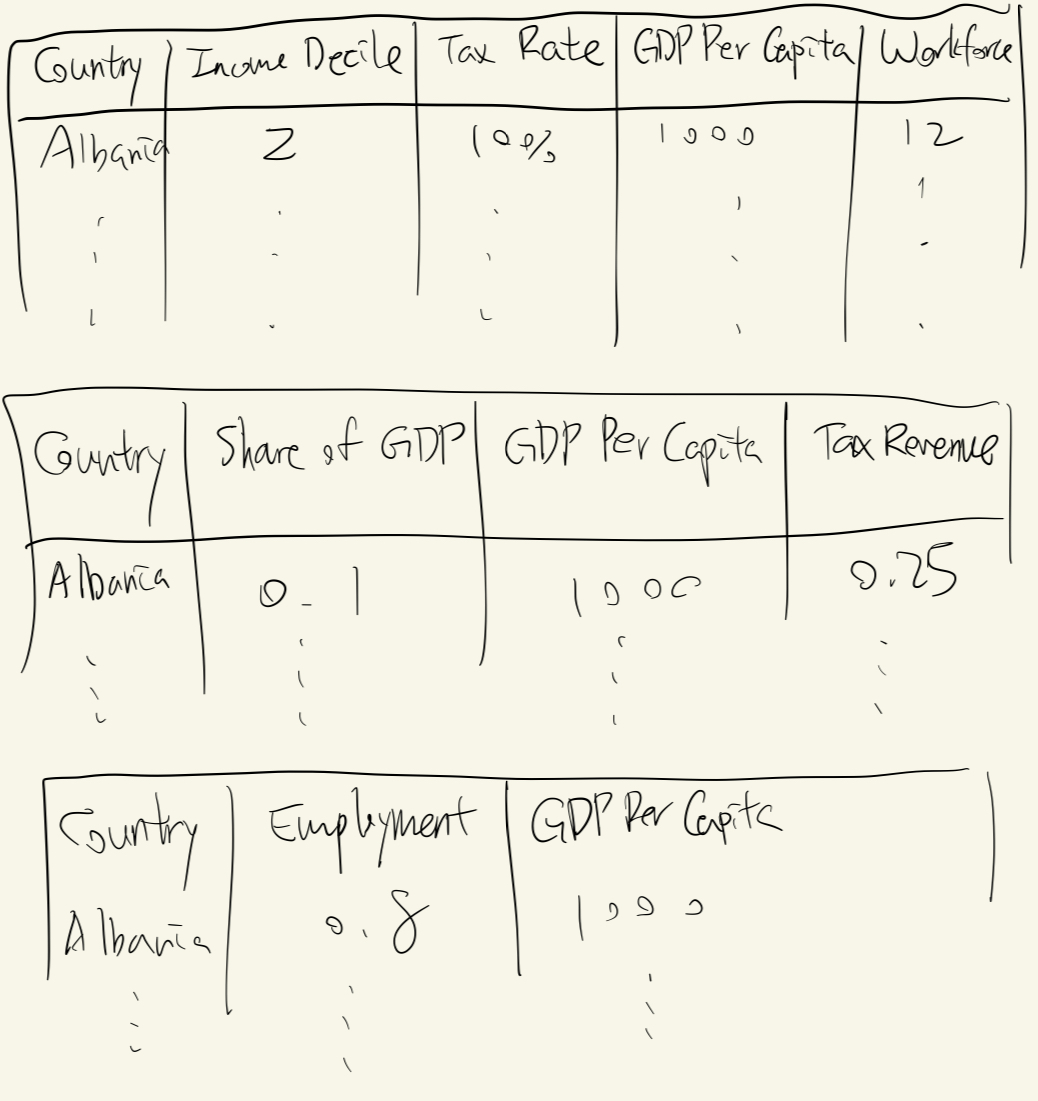 Country Income Decile Tax Rate GDP Per Capita Workforce
Albania 2 10% 1000 12
Country Share of GDP GDP Per Capita Tax Revenue
Albania 0.1 1000 0.25
Country Employment GDP Per Capita
Albania 0.8 1000